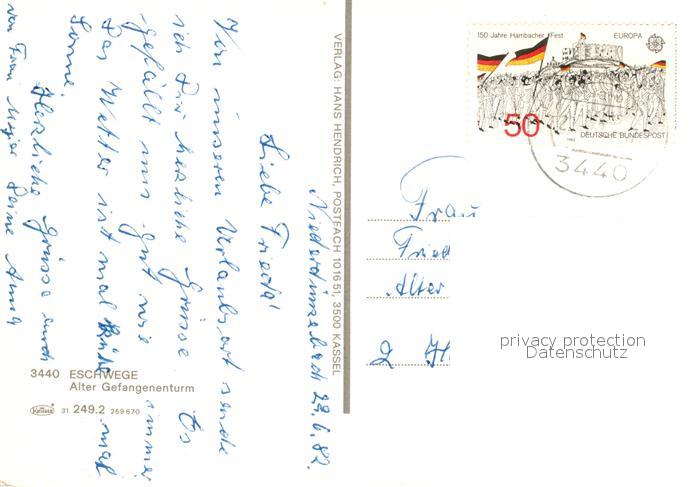 Niederdünzebach 29.6.82.
Liebe Frieda!
Von unserem Urlaubsort sende
ich Dir herzliche Grüsse. Es
gefällt uns gut wie immer
Das Wetter ist mal kühl mal
Sonne,
Herzliche Grüsse auch
von Frau Meyer Deine Anna
3440 ESCHWEGE
Alter Gefangenenturm
31. 249.2 269670
VERLAG: HANS HENDRICH, POSTFACH 101651, 3500 KASSEL
150 Jahre Hambacher Fest
EUROPA
50
DEUTSCHE BUNDESPOST
3440
Frau
Fried
Alter
2 H
privacy protection
Datenschutz